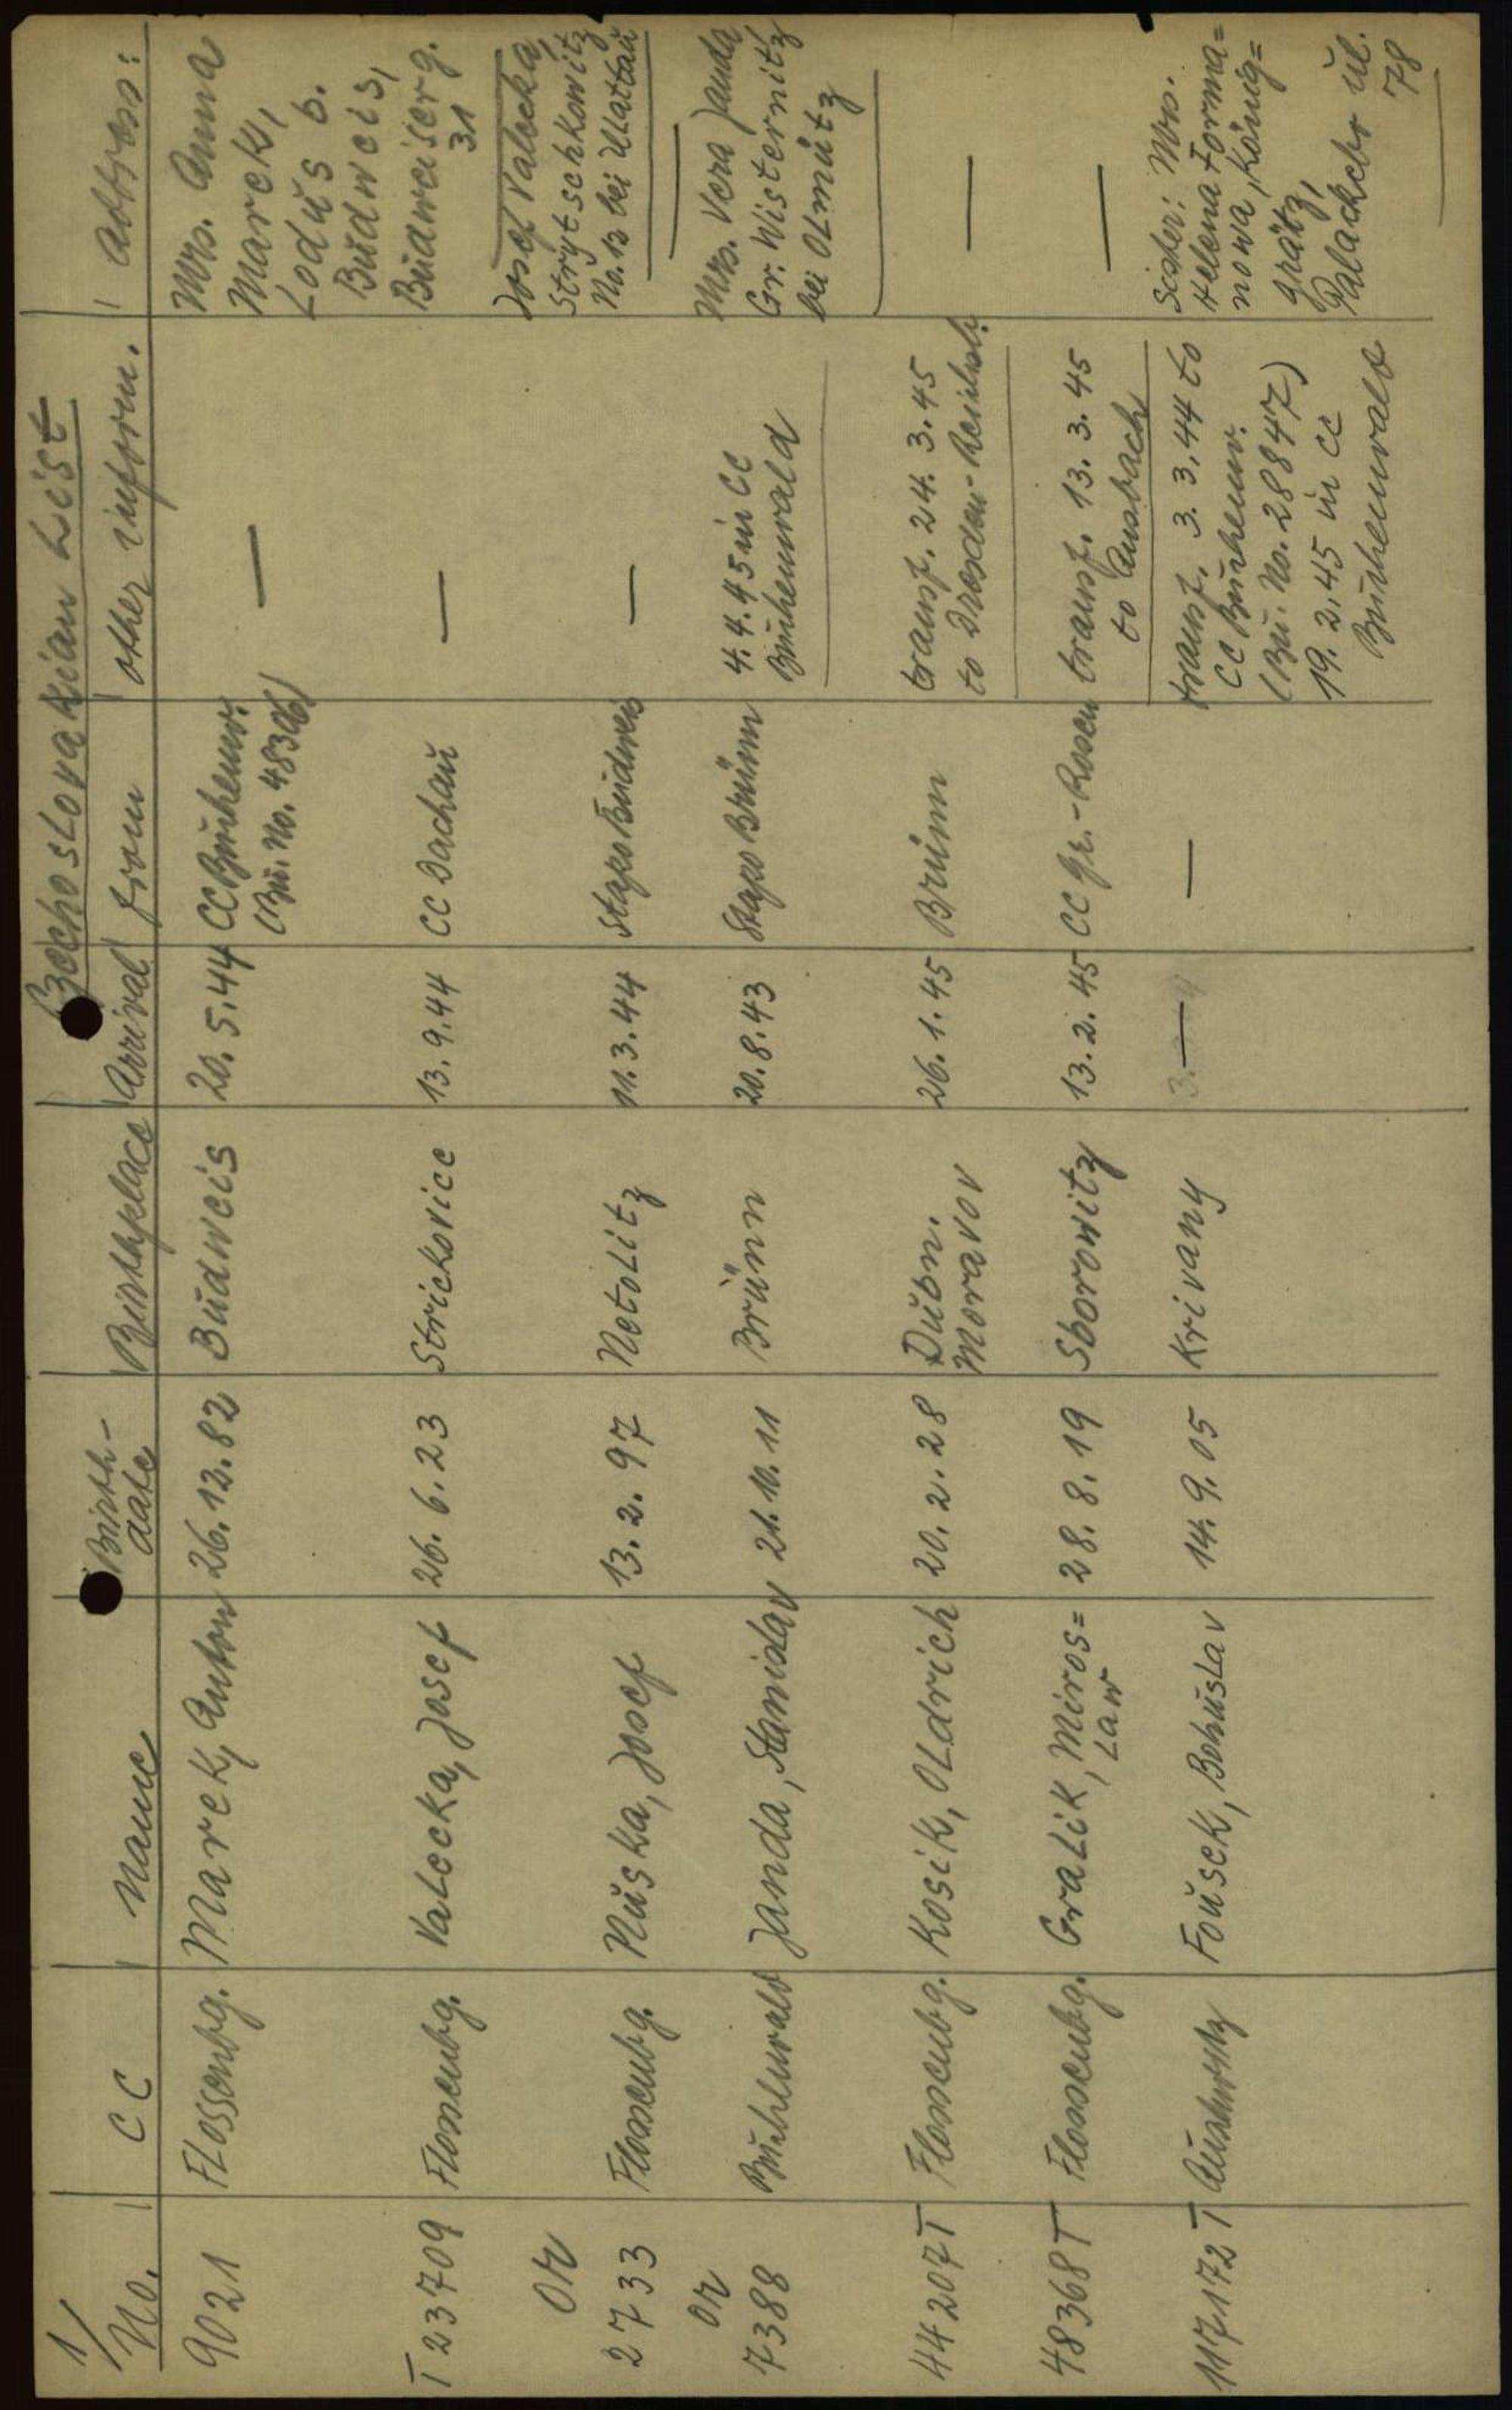 1/
Czechoslovakian List
No. | CC | Name | Birth-date | Birthplace | Arrival | from | other inform. | Address:
9021 Flossenbg. Marek, Anton 26.12.82 Budweis 20.5.44 CC Buchenw. (Bu. No. 48306) — Mrs. Anna
Marek,
Lodus b.
Budweis,
Budweiserg.
31
T 23709 Flossenbg. Valecka, Josef 26.6.23 Strickovice 13.9.44 CC Dachau — Josef Valecka,
Strytschkowitz
No. 13 bei Moldau
OR
2733 Flossenbg. Pluska, Josef 13.2.97 Netolitz 11.3.44 Stapo Budweis — —
OR
7388 Buchenwald Janda, Stanislav 21.10.11 Brünn 20.8.43 Stapo Brünn 4.4.45 in CC
Buchenwald Mrs. Vera Janda
Gr. Wisternitz
bei Olmütz
44207 T Flossenbg. Kosik, Oldrich 20.2.28 Dubn.
Moravov 26.1.45 Brünn transf. 24.3.45
to Dresden-Reichsb. —
48368 T Flossenbg. Gralik, Miros=
law 28.8.19 Sborowitz 13.2.45 CC Gr.-Rosen transf. 13.3.45
to Ansbach —
117172 T Auschwitz Fousek, Bohuslav 14.9.05 Krivany — — transf. 3.3.44 to
CC Buchenw.
(Bu. No. 28847)
19.2.45 in CC
Buchenwald Sister: Mrs.
Helena Forma=
nowa, König=
grätz,
Palackeho ul.
78